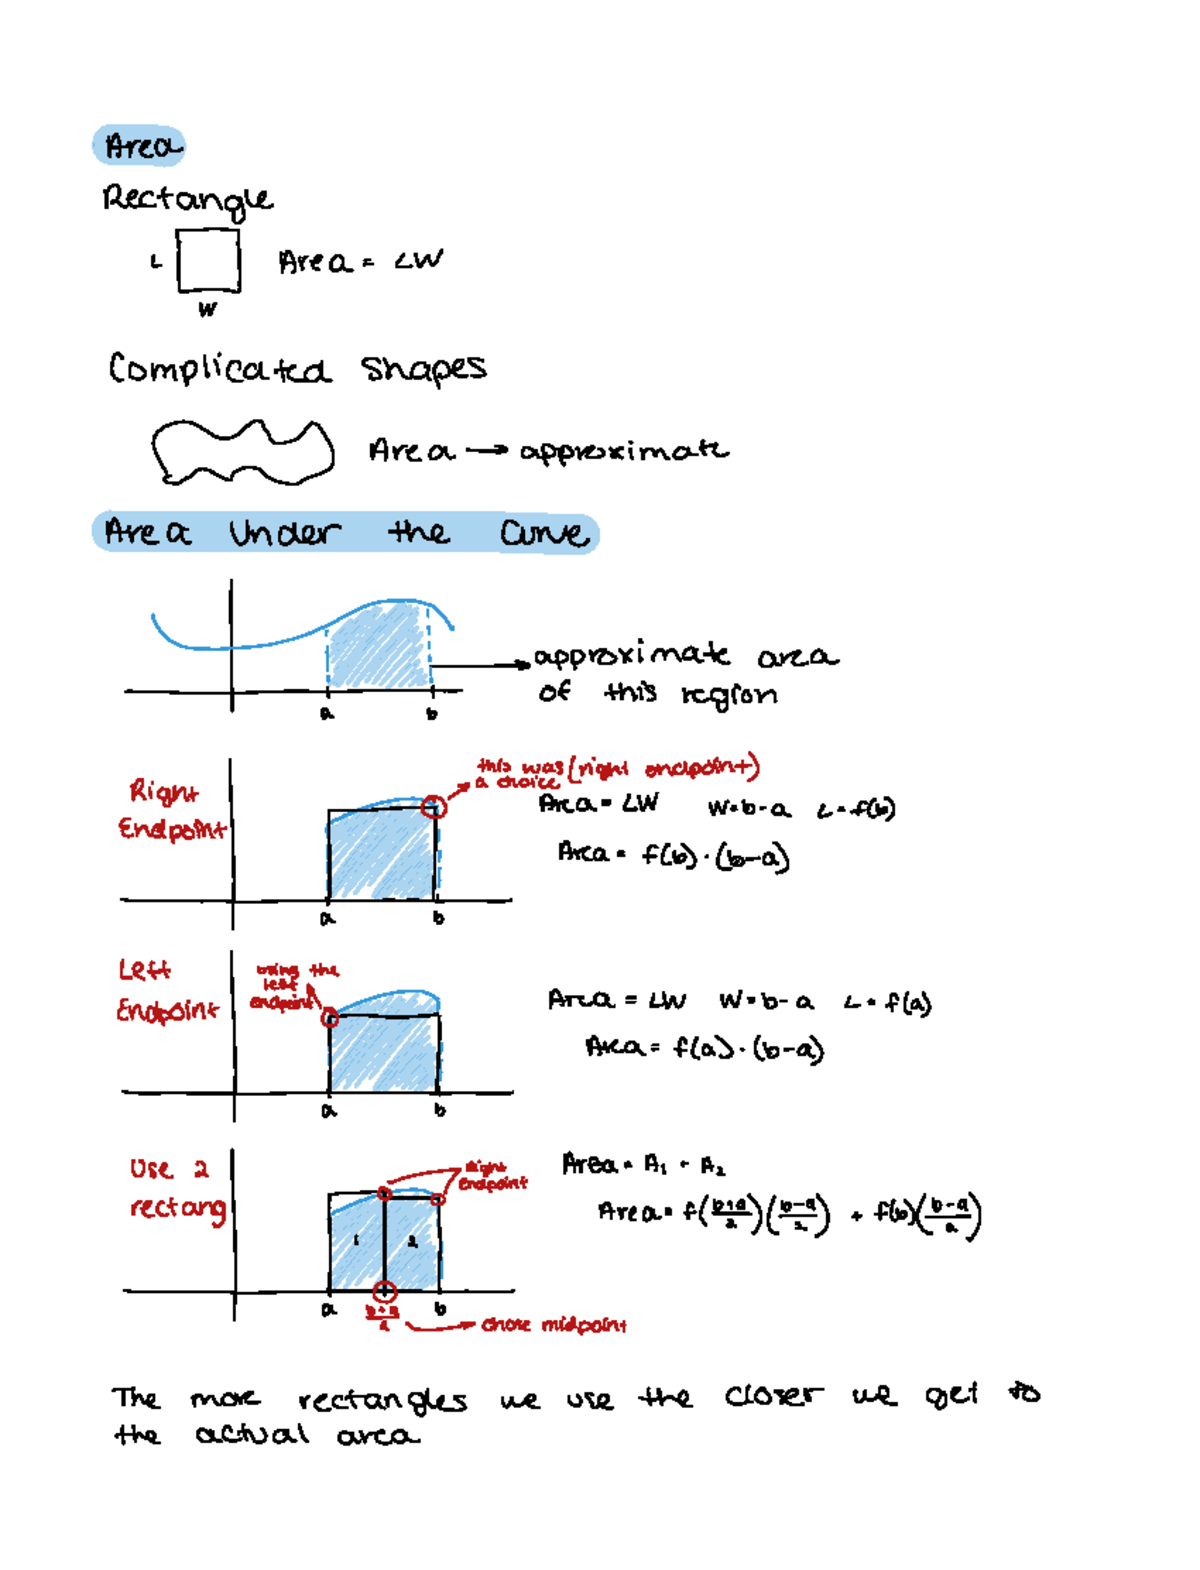 Area
Rectangle
L
Area = LW
W
Complicated shapes
Area → approximate
Area Under the Curve
approximate area
of this region
a b
this was (right endpoint)
a choice
Right
Endpoint
Area = LW W=b-a L=f(b)
Area = f(b)·(b-a)
a b
Left
Endpoint
using the
left
endpoint
Area = LW W=b-a L=f(a)
Area = f(a)·(b-a)
a b
Use 2
rectang
Right
Endpoint
Area = A₁ + A₂
Area = f((b+a)/2)((b-a)/2) + f(b)((b-a)/2)
1 2
a (b+a)/2 b
chose midpoint
The more rectangles we use the closer we get to
the actual area